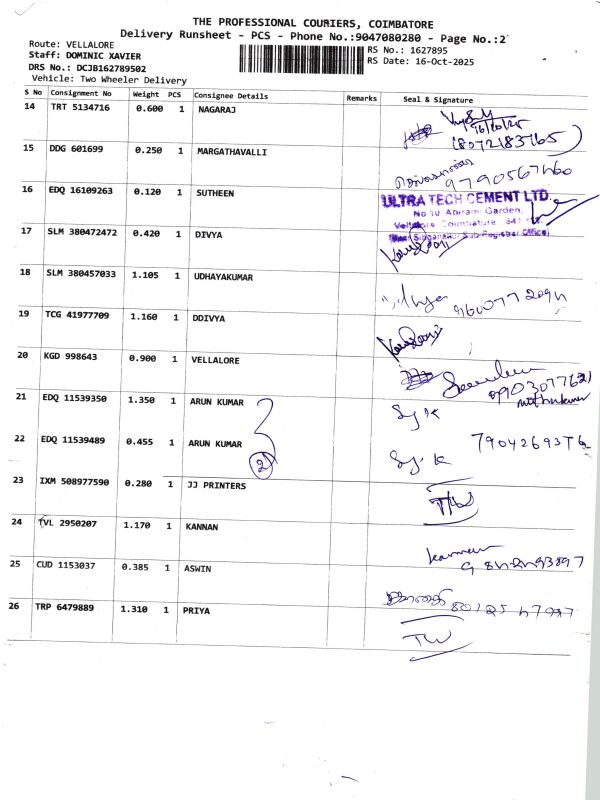 THE PROFESSIONAL COURIERS, COIMBATORE
Delivery Runsheet - PCS - Phone No.:9047080280 - Page No.:2
Route: VELLALORE
Staff: DOMINIC XAVIER
DRS No.: DCJB162789502
Vehicle: Two Wheeler Delivery
RS No.: 1627895
RS Date: 16-Oct-2025
S No Consignment No Weight PCS Consignee Details Remarks Seal & Signature
14 TRT 5134716 0.600 1 NAGARAJ
16/10/25
8072183765
15 DDG 601699 0.250 1 MARGATHAVALLI
9790567460
16 EDQ 16109263 0.120 1 SUTHEEN
ULTRA TECH CEMENT LTD.
No 10 Abirami Garden,
Vellalore Coimbatore 641
Sub Registrar Office)
17 SLM 380472472 0.420 1 DIVYA
18 SLM 380457033 1.105 1 UDHAYAKUMAR
19 TCG 41977709 1.160 1 DDIVYA
20 KGD 998643 0.900 1 VELLALORE
21 EDQ 11539350 1.350 1 ARUN KUMAR
22 EDQ 11539489 0.455 1 ARUN KUMAR
2
7904269376
23 IXM 508977590 0.280 1 JJ PRINTERS
TW
24 TVL 2950207 1.170 1 KANNAN
25 CUD 1153037 0.385 1 ASWIN
26 TRP 6479889 1.310 1 PRIYA
TW